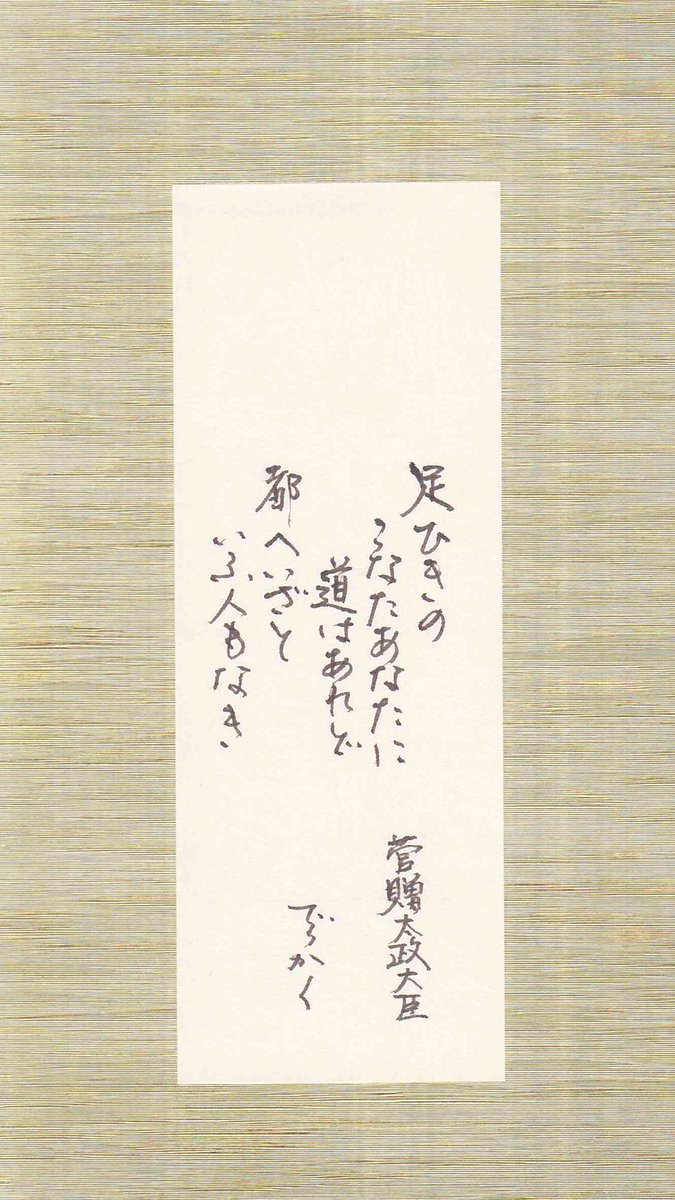 足ひきの
こなたあなたに
道はあれど
都へいざと
いふ人もなき
菅贈太政大臣
でらかく